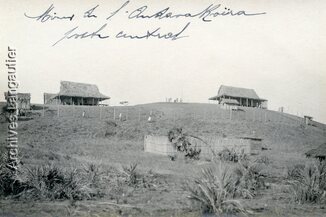 Mine de l'Ankara Kaïra
poste central
Archives Langautier